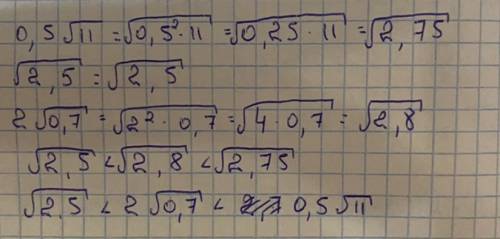 0,5√11 = √0,5²·11 = √0,25·11 = √2,75
√2,5 = √2,5
2√0,7 = √2²·0,7 = √4·0,7 = √2,8
√2,5 < √2,8 < √2,75
√2,5 < 2√0,7 < 0,5√11